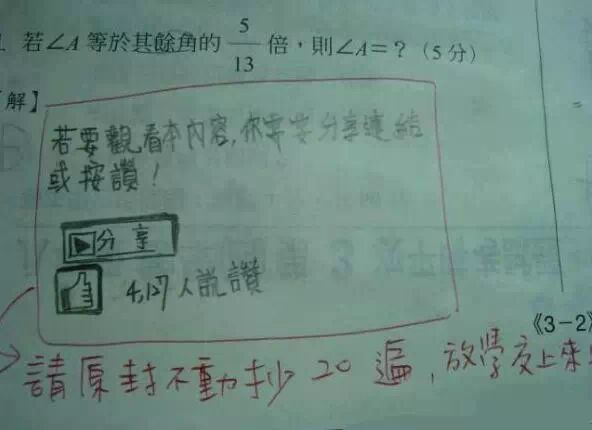 若∠A 等於其餘角的 5/13 倍，則∠A＝？（5 分）
解】
若要觀看本內容,你需要分享連結
或按讚!
分享
4,127 人說讚
《3－2》
請原封不動抄 20 遍, 放學交上來